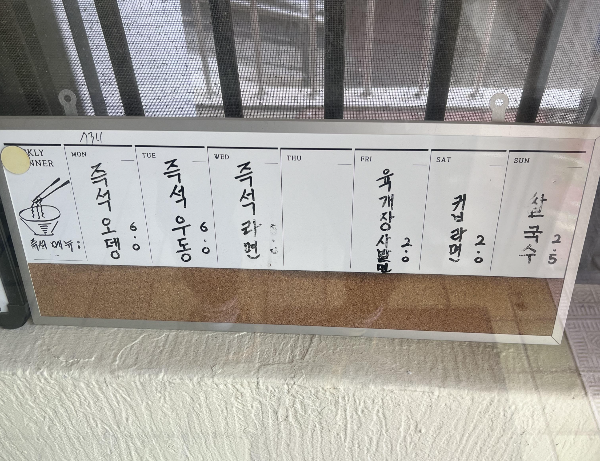 KLY
NNER
MON
TUE
WED
THU
FRI
SAT
SUN
즉석 메뉴:
즉석 오뎅 6.0
즉석 우동 6.0
즉석 라면
육개장 사발면 2.0
컵라면 2.0
쌀국수 2.5